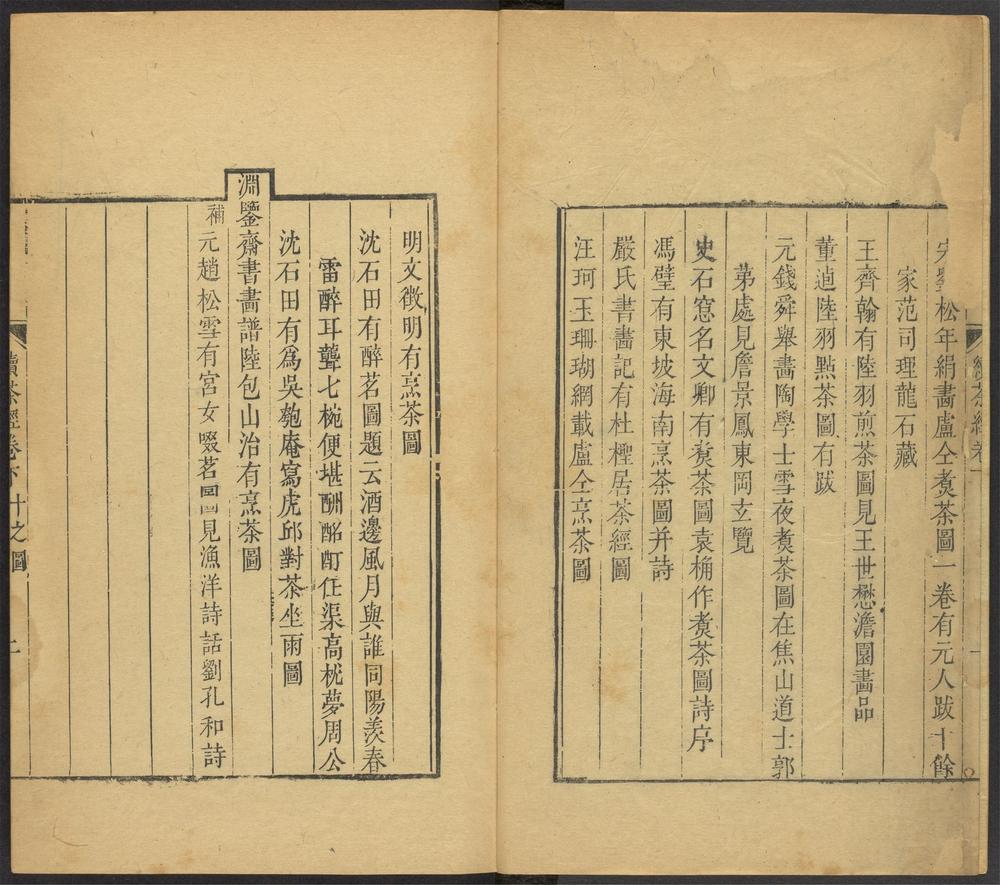 宋劉松年絹畫盧仝煑茶圖一卷有元人跋十餘
家范司理龍石藏
王齊翰有陸羽煎茶圖見王世懋澹園畫品
董逌陸羽點茶圖有跋
元錢舜舉畫陶學士雪夜煑茶圖在焦山道士郭
苐處見詹景鳳東岡玄覽
史石窓名文卿有煑茶圖袁桷作煑茶圖詩序
馮璧有東坡海南烹茶圖并詩
嚴氏書畫記有杜檉居茶經圖
汪珂玉珊瑚網載盧仝烹茶圖
明文徴明有烹茶圖
沈石田有醉茗圖題云酒邊風月與誰同陽羨春
雷醉耳聾七椀便堪酬酩酊任渠高枕夢周公
沈石田有爲吳匏庵寫虎邱對茶坐雨圖
淵鑒齋書畫譜陸包山治有烹茶圖
補元趙松雪有宮女啜茗圖見漁洋詩話劉孔和詩
續茶經卷下 十之圖 二